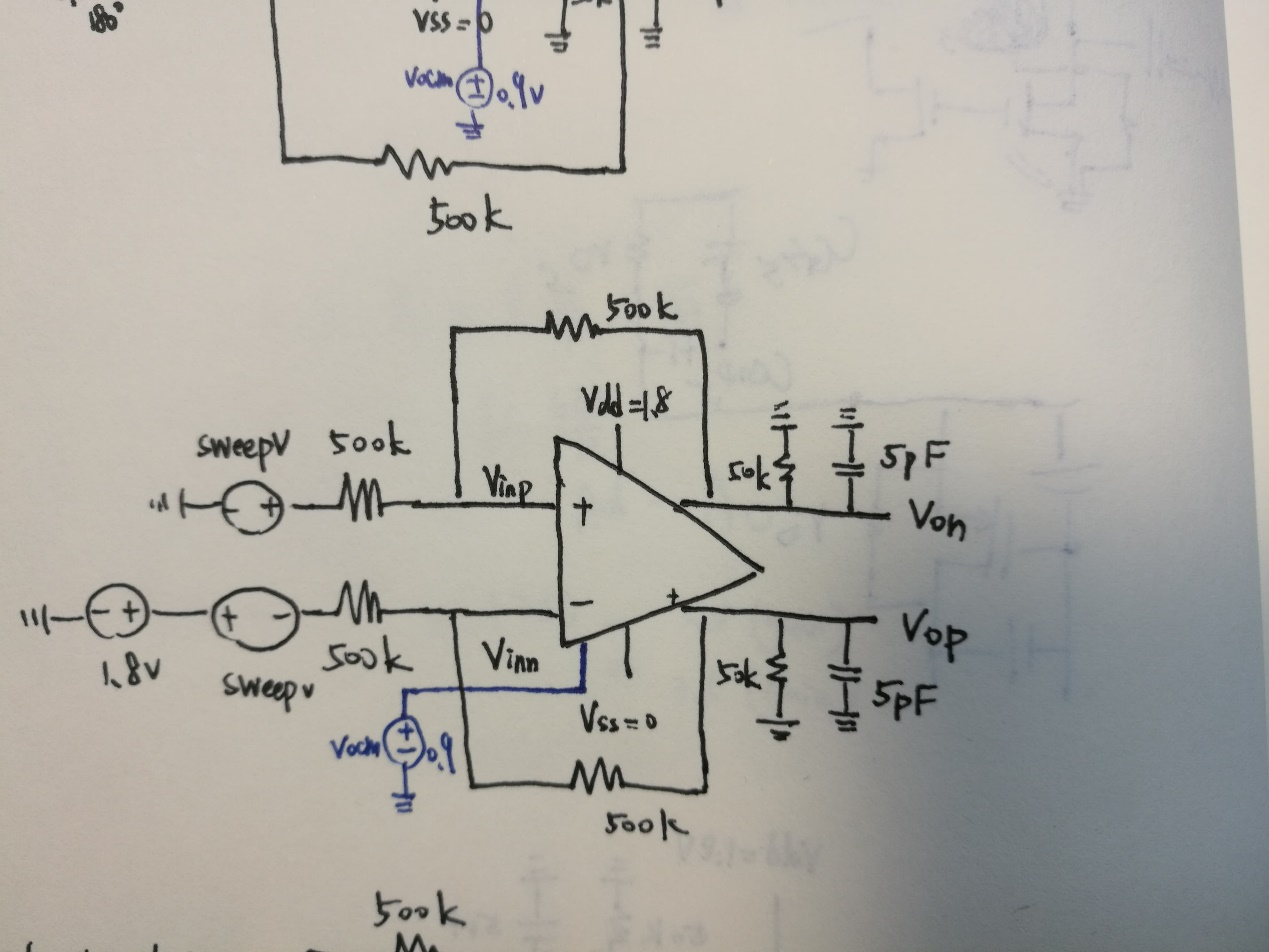 180°
VSS=0
Vocm
0.9V
500k
500k
Vdd=1.8
sweepV
500k
Vinp
+
50k
5pF
Von
- +
1.8v
+ -
sweepv
500k
Vinn
-
+
50k
5pF
Vop
Vss=0
Vocm
0.9
500k
500k